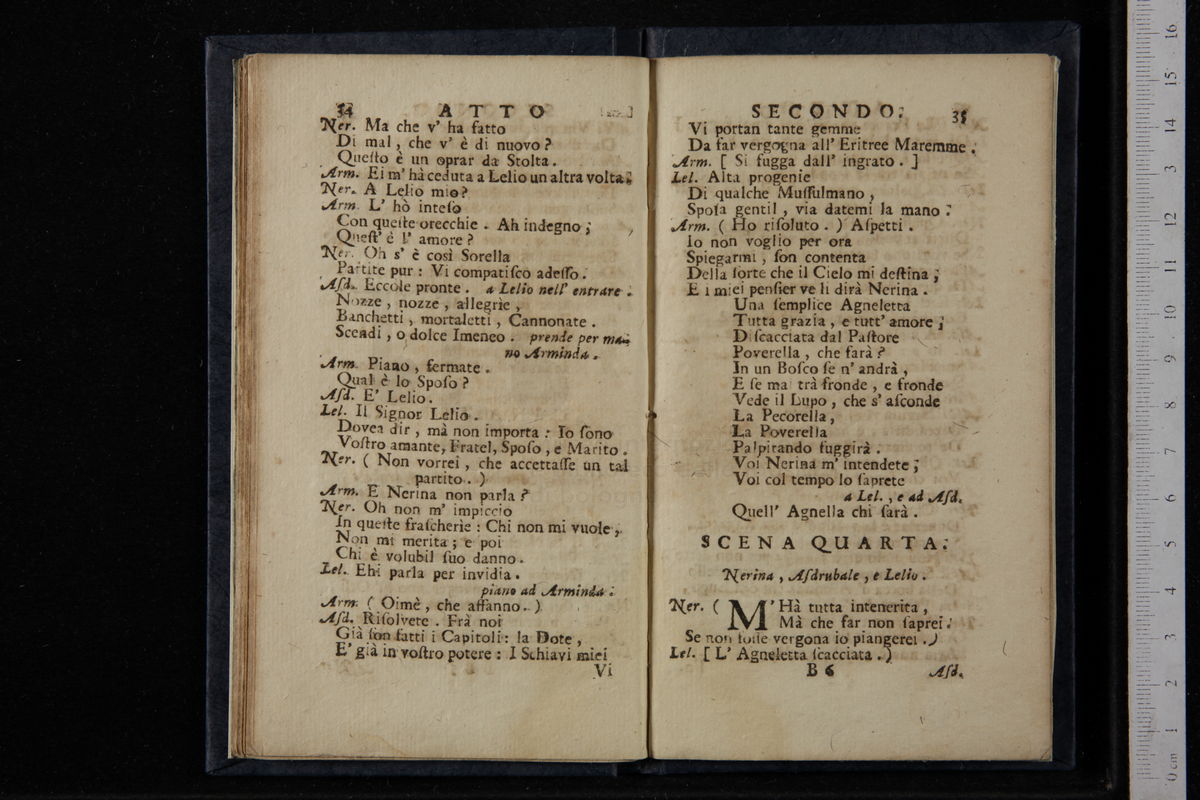 34 ATTO
Ner. Ma che v' ha fatto
Di mal, che v' è di nuovo?
Queſto è un oprar da Stolta.
Arm. Ei m' hà ceduta a Lelio un altra volta.
Ner. A Lelio mio?
Arm. L' hò inteſo
Con queſte orecchie. Ah indegno;
Queſt' è l' amore?
Ner. Oh s' è così Sorella
Partite pur: Vi compatiſco adeſſo.
Aſd. Eccole pronte. a Lelio nell' entrare.
Nozze, nozze, allegrie,
Banchetti, mortaletti, Cannonate.
Scendi, o dolce Imeneo. prende per ma-
no Arminda.
Arm. Piano, fermate.
Qual è lo Spoſo?
Aſd. E' Lelio.
Lel. Il Signor Lelio.
Dovea dir, mà non importa: Io ſono
Voſtro amante, Fratel, Spoſo, e Marito.
Ner. (Non vorrei, che accettaſſe un tal
partito.)
Arm. E Nerina non parla?
Ner. Oh non m' impiccio
In queſte fraſcherie: Chi non mi vuole,
Non mi merita; e poi
Chi è volubil ſuo danno.
Lel. Ehi parla per invidia.
piano ad Arminda.
Arm. (Oimè, che affanno.)
Aſd. Riſolvete. Frà noi
Già ſon fatti i Capitoli: la Dote,
E' già in voſtro potere: I Schiavi miei
Vi
SECONDO. 35
Vi portan tante gemme
Da far vergogna all' Eritree Maremme.
Arm. [Si fugga dall' ingrato.]
Lel. Alta progenie
Di qualche Muſſulmano,
Spoſa gentil, via datemi la mano.
Arm. (Ho riſoluto.) Aſpetti.
Io non voglio per ora
Spiegarmi, ſon contenta
Della ſorte che il Cielo mi deſtina;
E i miei penſier ve li dirà Nerina.
Una ſemplice Agneletta
Tutta grazia, e tutt' amore;
Diſcacciata dal Paſtore
Poverella, che farà?
In un Boſco ſe n' andrà,
E ſe ma trà fronde, e fronde
Vede il Lupo, che s' aſconde
La Pecorella,
La Poverella
Palpitando fuggirà.
Voi Nerina m' intendete;
Voi col tempo lo ſaprete
a Lel., e ad Aſd.
Quell' Agnella chi ſarà.
SCENA QUARTA.
Nerina, Aſdrubale, e Lelio.
Ner. (M' Hà tutta intenerita,
Mà che far non ſaprei.
Se non foſſe vergona io piangerei.)
Lel. [L' Agneletta ſcacciata.)
B 6 Aſd.